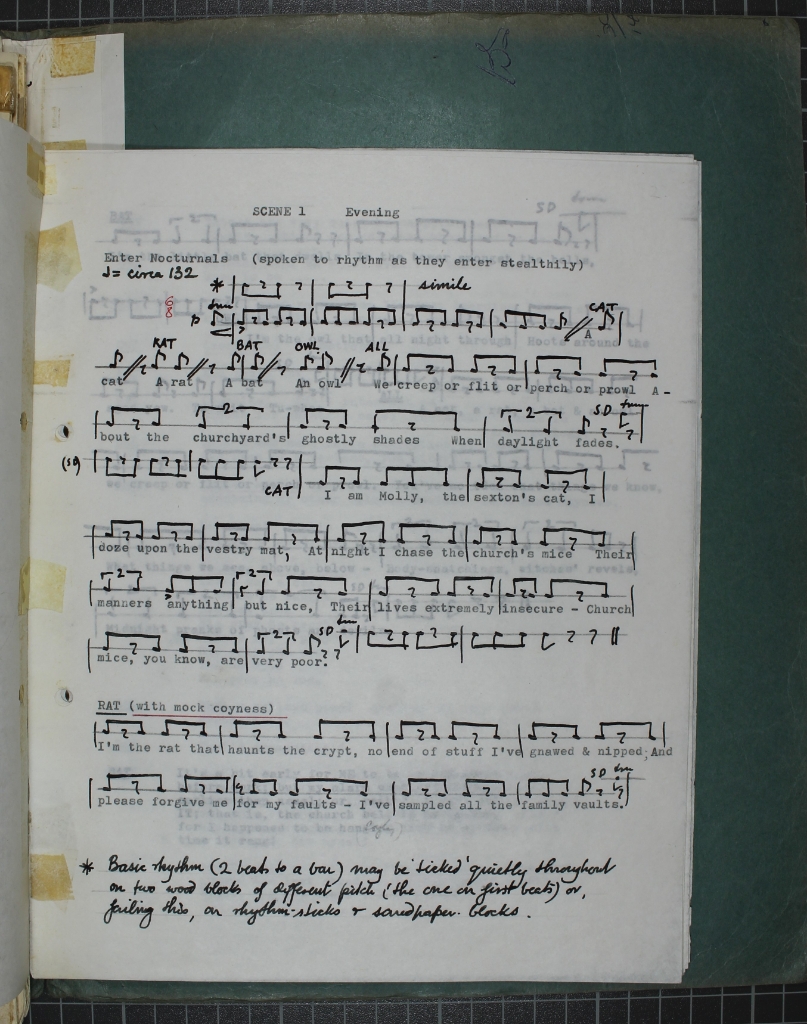 SCENE 1 Evening
Enter Nocturnals (spoken to rhythm as they enter stealthily)
♩= circa 132
* simile
6 8
p CAT
A
RAT BAT OWL ALL
cat A rat A bat An owl We creep or flit or perch or prowl A-
2 2 SD
bout the churchyard's ghostly shades When daylight fades.
(SD)
CAT
I am Molly, the sexton's cat, I
doze upon the vestry mat, At night I chase the church's mice Their
2 2
manners anything but nice, Their lives extremely insecure - Church
2 SD
mice, you know, are very poor.
RAT (with mock coyness)
I'm the rat that haunts the crypt, no end of stuff I've gnawed & nipped; And
SD
please forgive me for my faults - I've sampled all the family vaults.
* Basic rhythm (2 beats to a bar) may be 'ticked' quietly throughout
on two wood blocks of different pitch (the one on first beats) or,
failing this, on rhythm-sticks & sandpaper blocks.